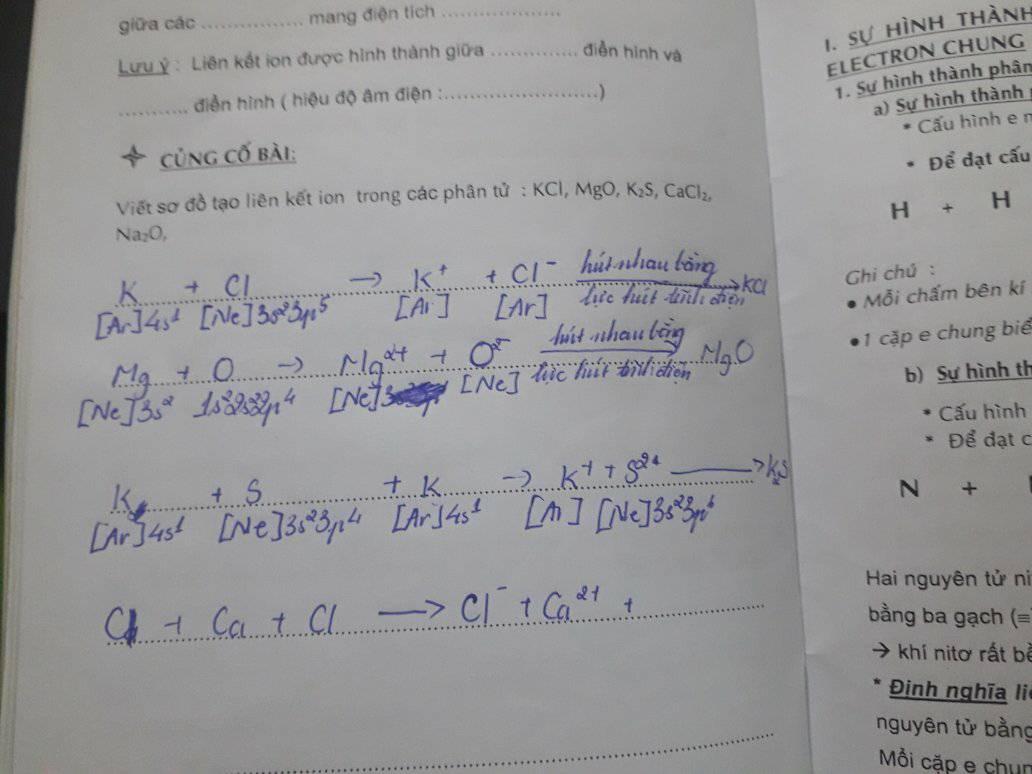 giữa các ................ mang điện tích ....................
Lưu ý : Liên kết ion được hình thành giữa .............. điển hình và
........... điển hình ( hiệu độ âm điện :.........................)
CỦNG CỐ BÀI:
Viết sơ đồ tạo liên kết ion trong các phân tử : KCl, MgO, K₂S, CaCl₂,
Na₂O,
K + Cl → K⁺ + Cl⁻ hút nhau bằng lực hút tĩnh điện → KCl
[Ar]4s¹ [Ne]3s²3p⁵ [Ar] [Ar]
Mg + O → Mg²⁺ + O²⁻ hút nhau bằng lực hút tĩnh điện → MgO
[Ne]3s² 1s²2s²2p⁴ [Ne] [Ne]
K + S + K → K⁺ + S²⁺ → K₂S
[Ar]4s¹ [Ne]3s²3p⁴ [Ar]4s¹ [Ar] [Ne]3s²3p⁶
Cl + Ca + Cl → Cl⁻ + Ca²⁺ +
I. SỰ HÌNH THÀNH
ELECTRON CHUNG
1. Sự hình thành phân
a) Sự hình thành
* Cấu hình e
* Để đạt cấu
H + H
Ghi chú :
● Mỗi chấm bên kí
●1 cặp e chung biể
b) Sự hình th
* Cấu hình
* Để đạt c
N +
Hai nguyên tử ni
bằng ba gạch (≡
→ khí nitơ rất bề
* Định nghĩa liê
nguyên tử bằng
Mỗi cặp e chun